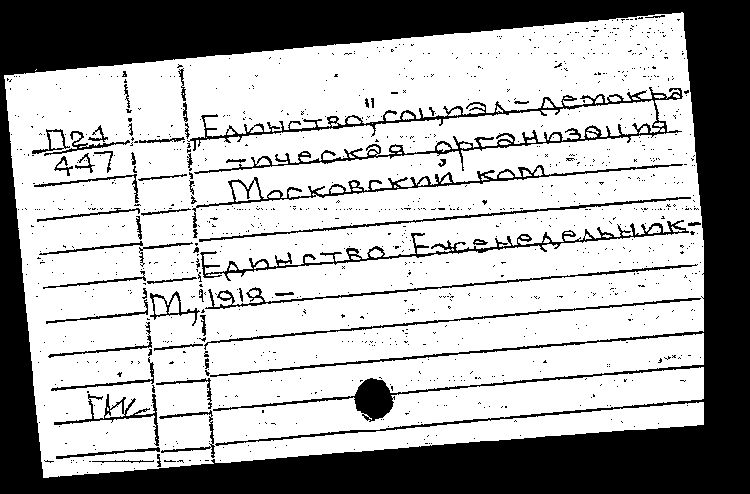 П24
447
„Единство", социал-демокра-
тическая организация
Московский ком.
Единство. Еженедельник.-
М., 1918 –